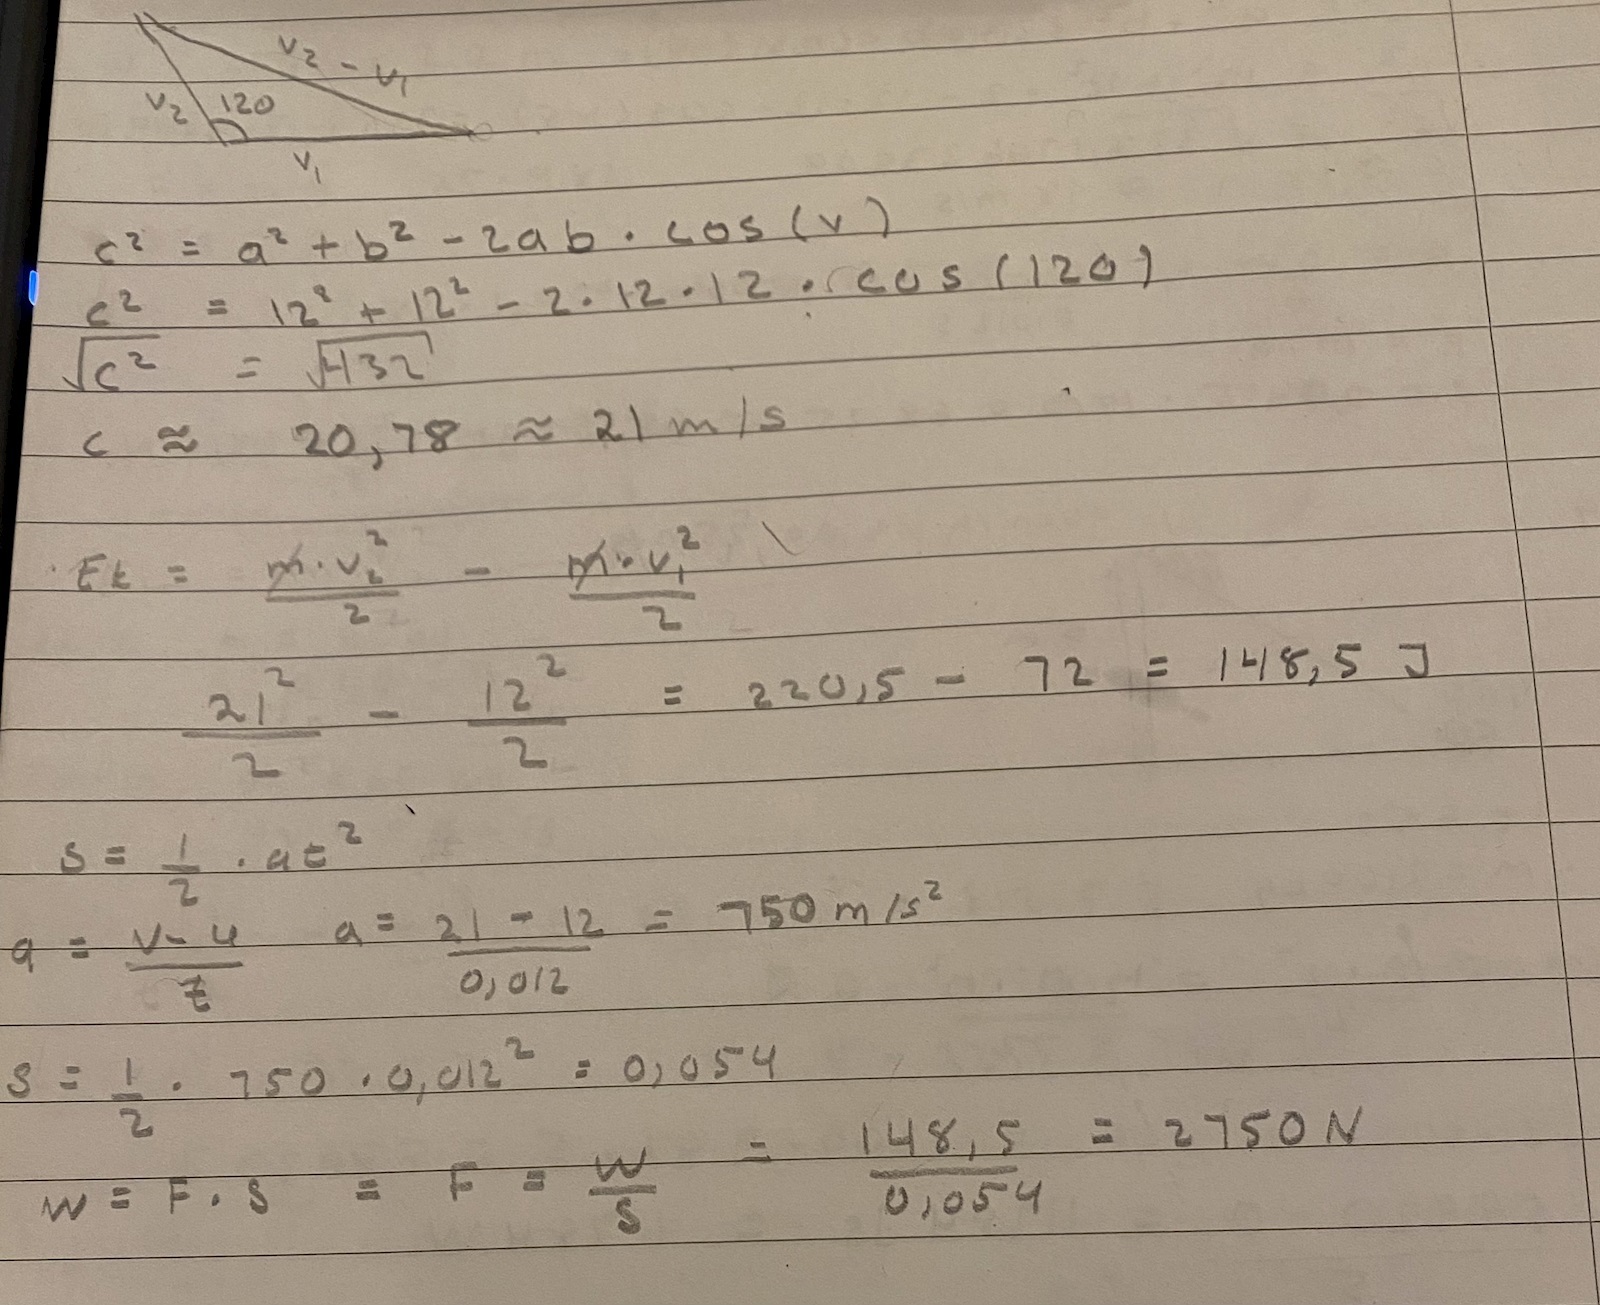 v₂ - v₁
v₂ 120
v₁
c² = a² + b² - 2ab · cos(v)
c² = 12² + 12² - 2 · 12 · 12 · cos(120)
√c² = √432
c ≈ 20,78 ≈ 21 m/s
Ek = m·v₂²/2 - m·v₁²/2
21²/2 - 12²/2 = 220,5 - 72 = 148,5 J
s = 1/2 · at²
a = v-u/t a = 21 - 12/0,012 = 750 m/s²
s = 1/2 · 750 · 0,012² = 0,054
W = F · s = F = W/s = 148,5/0,054 = 2750 N